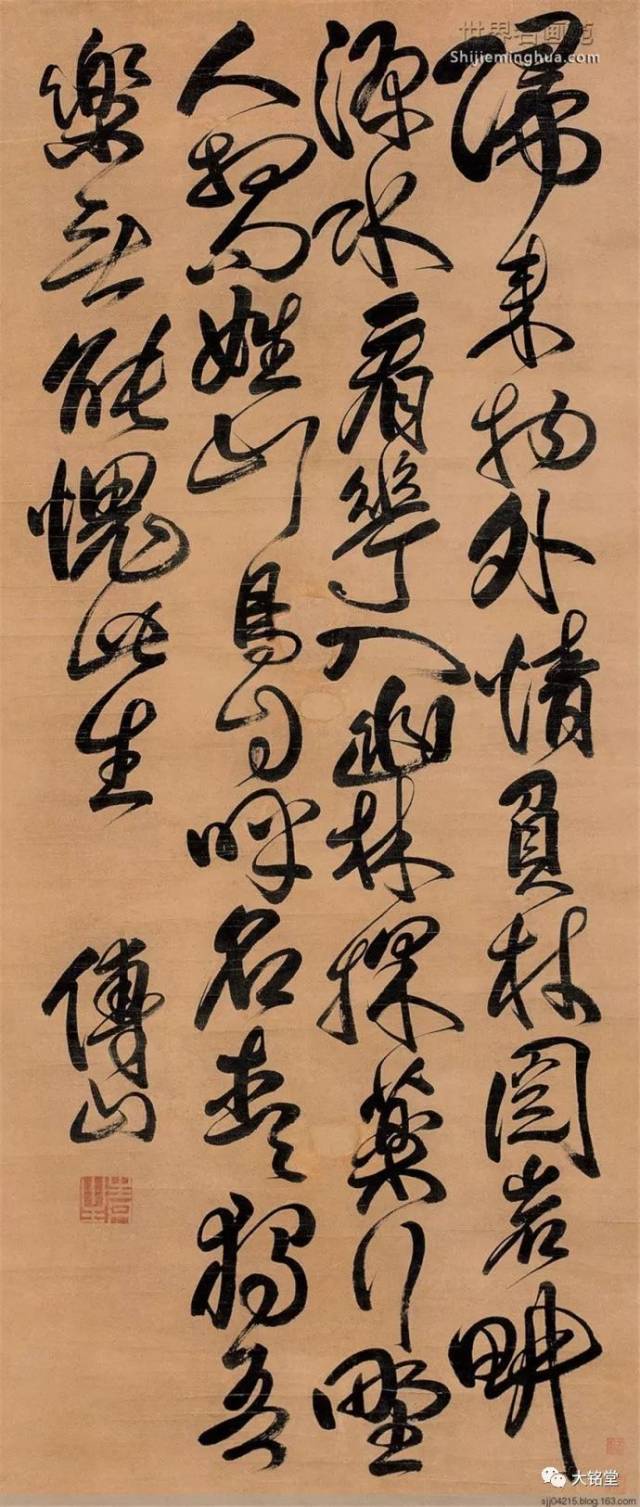 歸来物外情負杖閱岩畊
源水看華入幽林採藥行野
人相問姓山鳥自呼名去去獨吾
樂無能愧此生
傅山
世界名画苑
Shijieminghua.com
大铭堂
sjj04215.blog.163.com